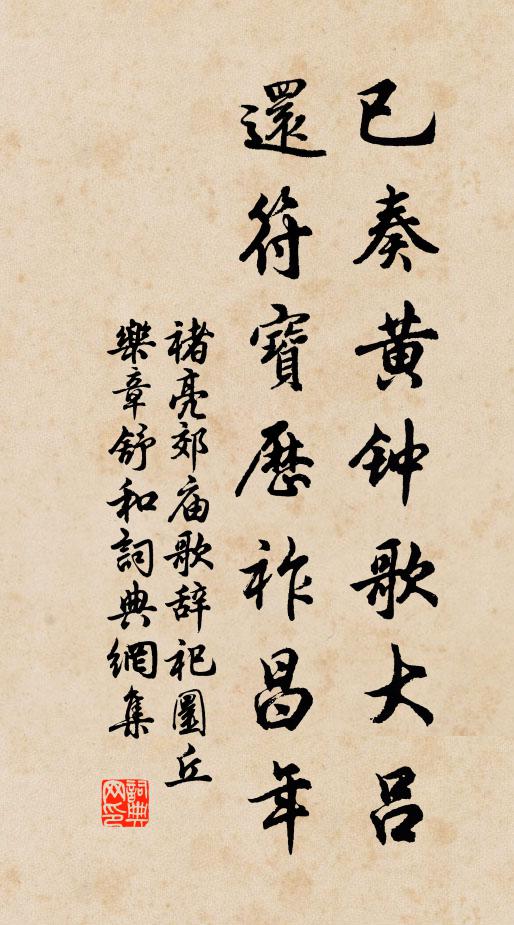 已奏黄钟歌大吕
還符寶歷祚昌年
褚亮郊庙歌辞祀圜丘
樂章舒和詞典網集
詞典网印